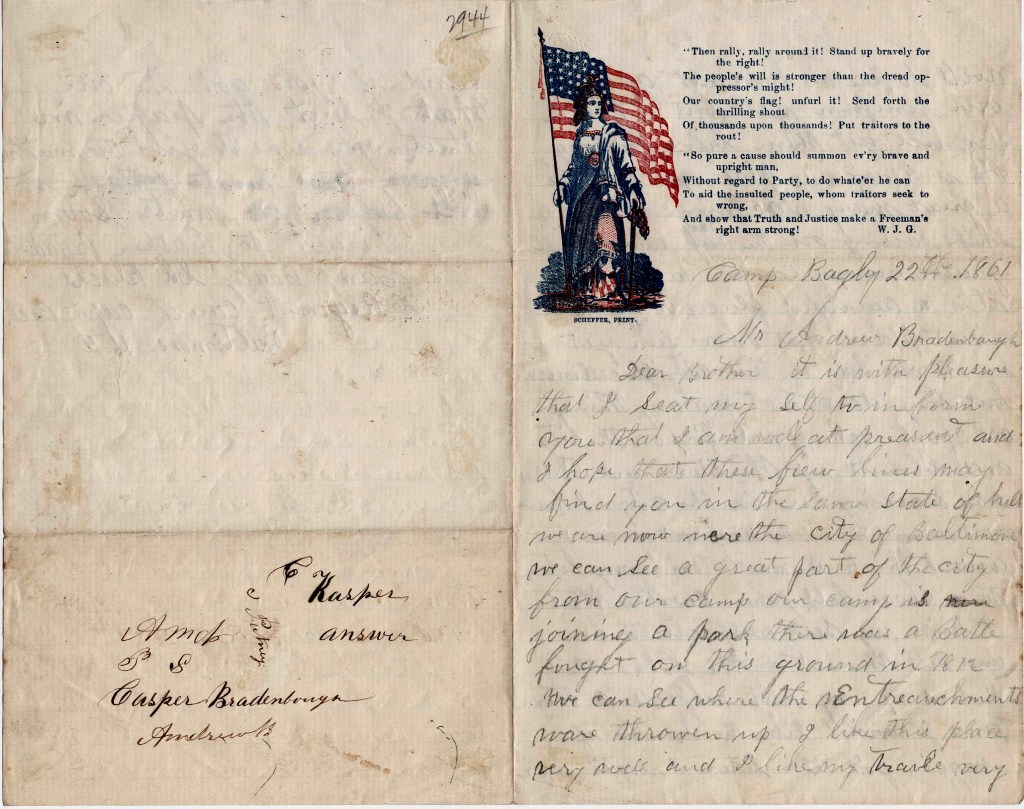 7944
C
Kasper
Amos
Pitney
answer
P S
Casper Bradenbough
Andrew B
"Then rally, rally around it! Stand up bravely for
the right!
The people's will is stronger than the dread op-
pressor's might!
Our country's flag! unfurl it! Send forth the
thrilling shout
Of thousands upon thousands! Put traitors to the
rout!
"So pure a cause should summon ev'ry brave and
upright man,
Without regard to Party, to do whate'er he can
To aid the insulted people, whom traitors seek to
wrong,
And show that Truth and Justice make a Freeman's
right arm strong! W. J. G.
SCHEFFER, PRINT.
Camp Bagly 22th 1861
Mr Andrew Bradenbaugh
Dear Brother it is with pleasure
that I Seat my Self to in form
you that I am well at preasant and
I hope that these fiew lines may
find you in the same state of
we are now nere the city of Baltimore
we can See a great part of the city
from our camp our camp is
joining a park there was a Batle
fought on this ground in 1812
we can See where the Entreanchments
ware throwen up I like this place
very well and I like my very